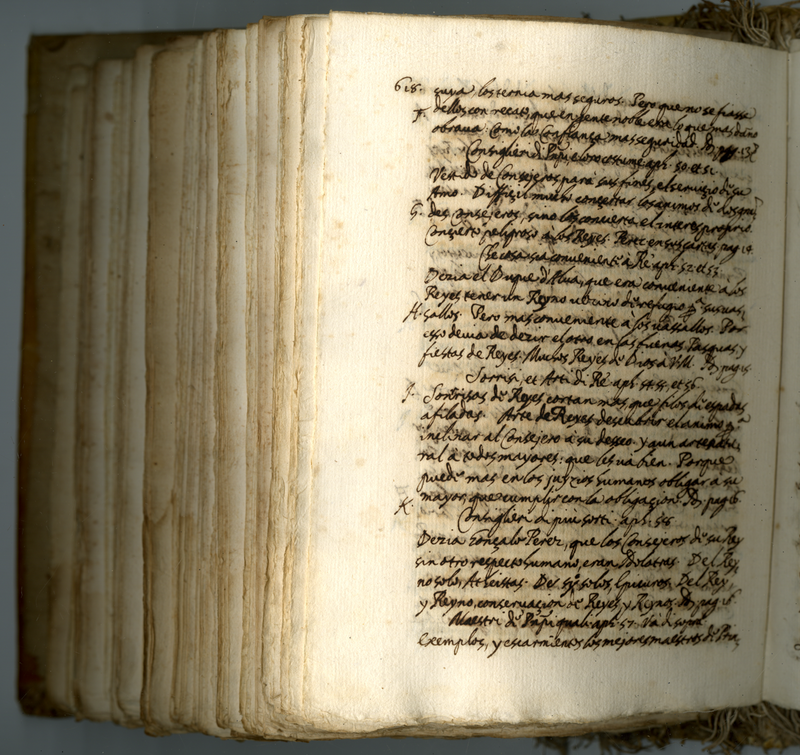 618. suya los ternia mas seguros. Pero que no se fiasse
F. dellos con recato, que en gente noble este es le que mas daño
obraua. Como la Confiança mas seguridad. pag. 13
Consiglieri di Prñpi e loro costume aph. 50. et 51.
Vestido de Consejeros para sus fines, el seruicio de su
Amo. Difficil mucho concertar los animos de dos gran
G. des Consejeros, sino los concierta el interes proprio.
Concierto peligroso a los Reyes. Perez en sus cartas pag. 14
Che cosa sia conueniente à Re aph. 52. et 53.
Dezia el Duque d'Alua, que era conueniente a los
Reyes tener un Reyno uezino di refugio pa sus uas,
H. sallos. Pero mas conueniente a los uassallos. Por
esso deuia de dezir el otro en las buenas Pasquas, y
fiestas de Reyes. Muchos Reyes de Dios à V.M. pag. 15
Sorrisi, et Arti di Re aph. 54. 55. et 56
I. Sonrisas de Reyes cortan mas, que filos de espadas
afiladas. Arte de Reyes descubrir el animo pa
inclinar al Consejero à su desseo. y aun arte natu
ral à todos mayores: que les ua bien. Porque
puede mas en los juizios humanos obligar a su
mayor, que cumplir con la obligacion. pag. 16
K. Consiglieri di piu sorti. aph. 58
Dezia Gonçalo Perez, que los Consejeros de su Rey
sin otro respecto humano, eran Idolatras. Del Rey
no solo, Atheistas. De si solos, Epicuros. Del Rey,
y Reyno, conseruacion de Reyes y Reynos. pag. 16
Maestri de Prñpi quali aph. 57. Va di sopra
Exemplos, y escarmientos los mejores maestros de Prin